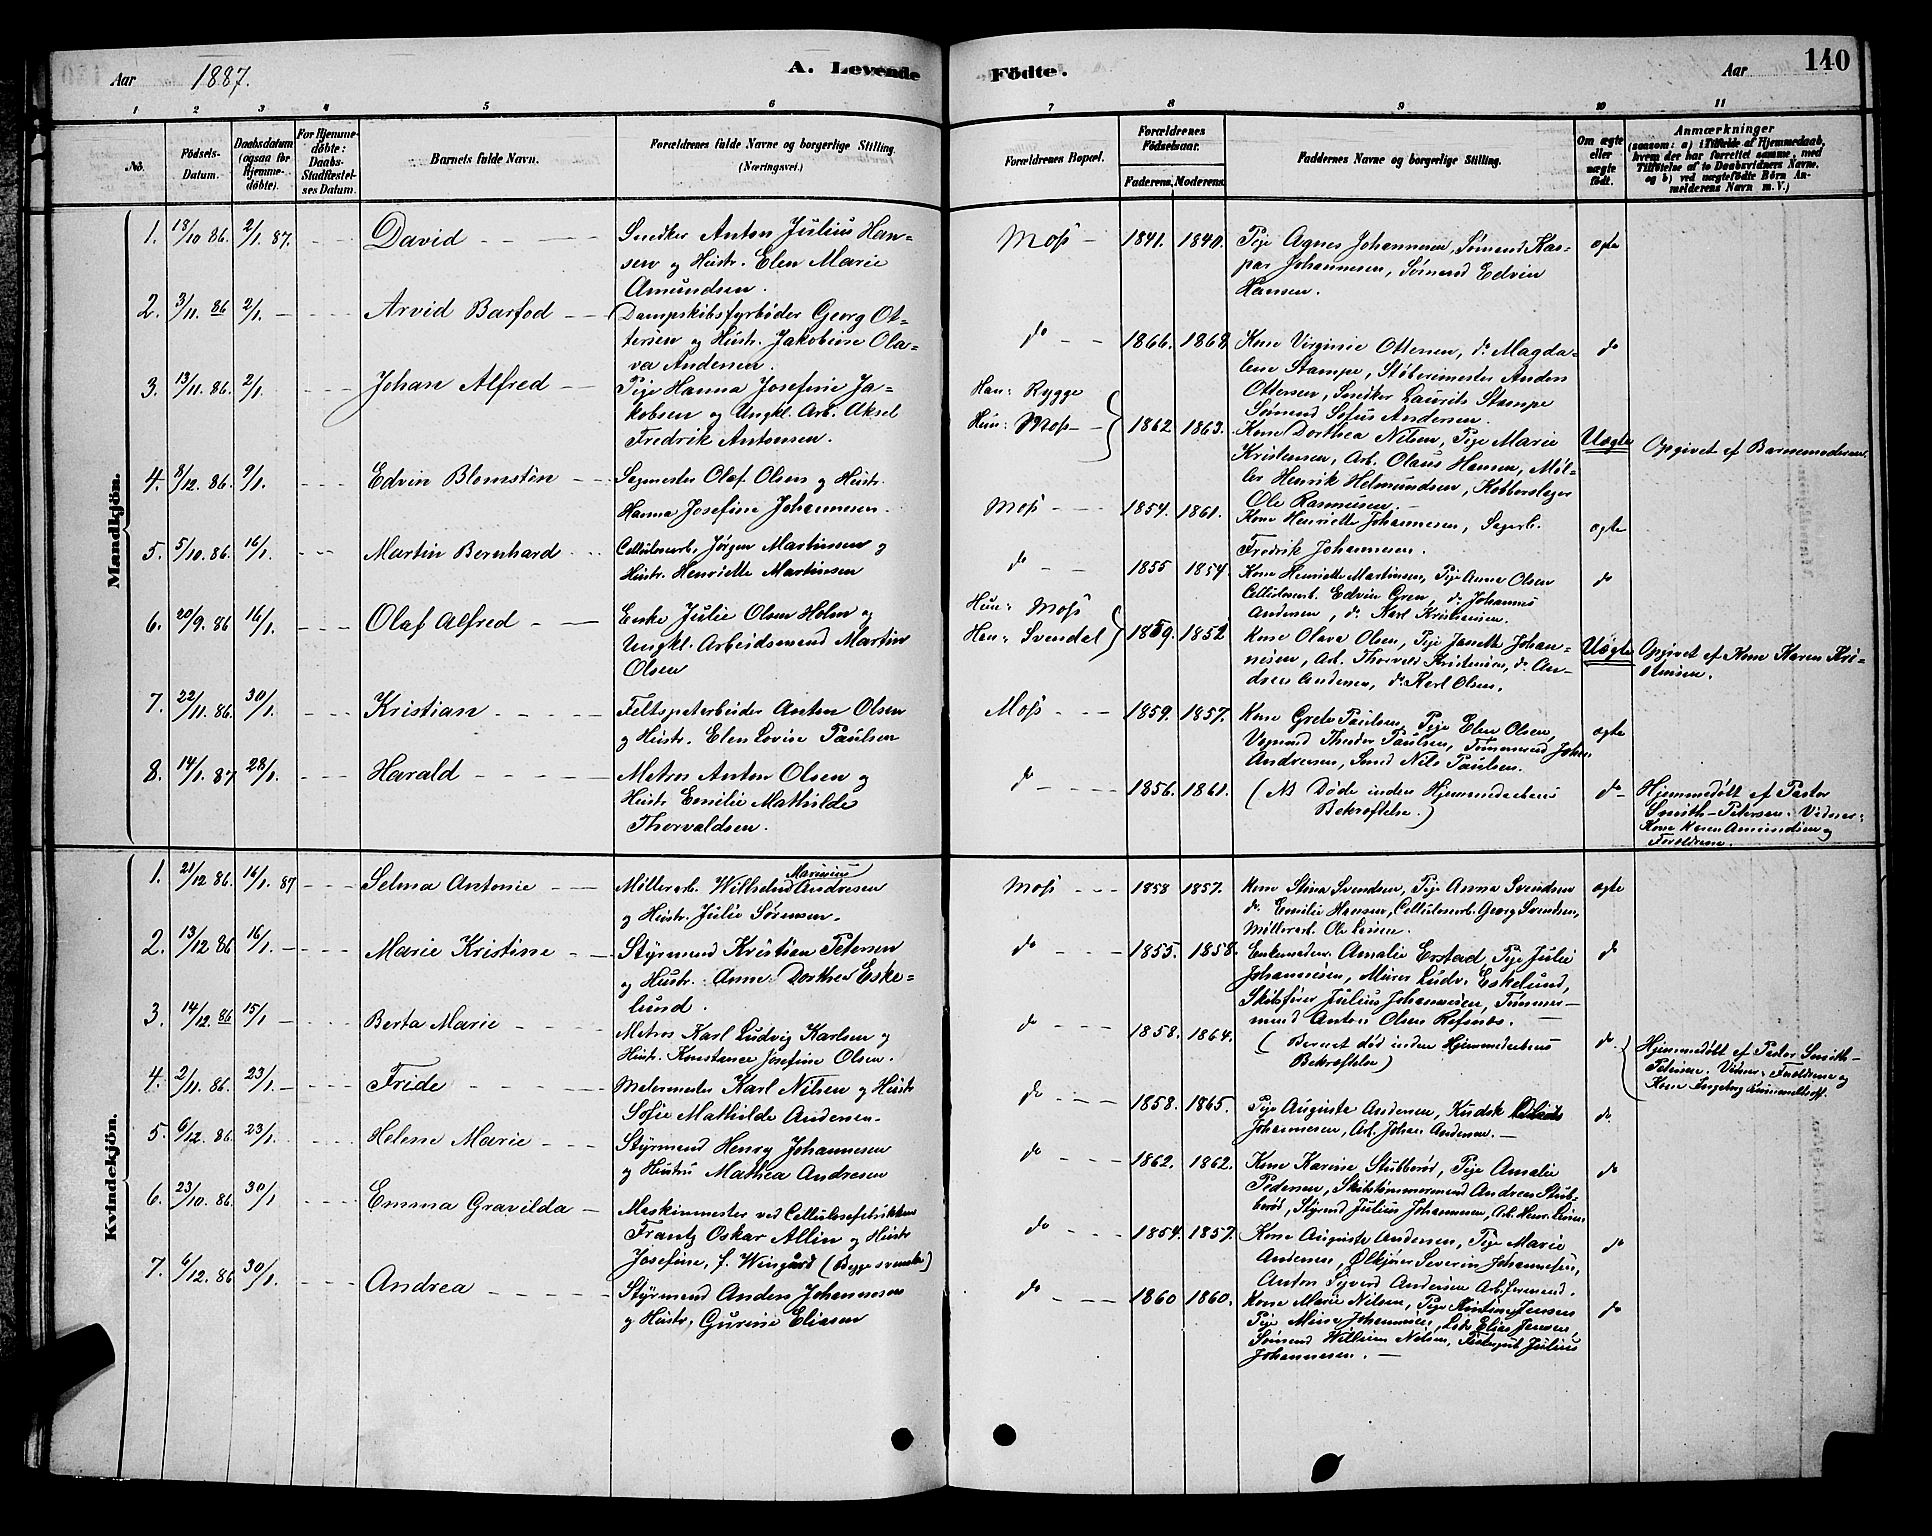 Aar 1887.
A. Levende
Födte.
Aar
140
1 2 3 4 5 6 7 8 9 10 11
No.
Födsels-
Datum.
Daabsdatum
(ogsaa for
Hjemme-
döbte).
For Hjemme-
döbte:
Daabs-
Stadfæstel-
ses Datum.
Barnets fulde Navn.
Forældrenes fulde Navne og borgerlige Stilling.
(Næringsvei.)
Forældrenes Bopæl.
Forældrenes
Födselsaar.
Faderens. Moderens.
Faddernes Navne og borgerlige Stilling.
Om ægte
eller
uægte
födt.
Anmærkninger
(saasom: a) i Tilfælde af Hjemmedaab,
hvem der har forrettet samme, med
Tilföielse af to Daabsvidners Navne.
og b) ved uægtefödte Börn An-
melderens Navn m. V.)
Mandkjön.
1. 18/10 86. 2/1. 87. David
Snedker Anton Julius Han-
sen og Hustr. Elen Marie
Amundsen.
Moss 1841. 1840.
Pige Agnes Johannesen, Sømand Kas-
par Johannesen, Sømand Edvin
Hansen.
ægte
2. 3/11. 86 2/1. Arvid Barfod
Dampskibsfyrbøder Georg Ot-
tersen og Hustr. Jakobine Ola-
va Andersen.
do 1866. 1868.
Kone Virginie Ottersen, do Magda-
lene Stampe, Støberimester Anders
Ottersen, Snedker Laurits Stampe
Sømand Sofus Andersen.
do
3. 13/11. 86. 2/1. Johan Alfred
Pige Hanna Josefine Ja-
kobsen og Ungkl. Arb. Aksel
Fredrik Antonsen.
Han: Rygge
Hun: Moss
1862 1863.
Kone Dorthea Nilsen, Pige Marie
Kristensen, Arb. Olaus Hansen, Møl-
ler Henrik Helmundsen, Kobberslager
Ole Rasmussen.
Uægte
Opgivet af Barnemoderen.
4. 8/12. 86. 9/1. Edvin Blomstén
Sagmester Olaf Olsen og Hustr.
Hanna Josefine Johannesen.
Moss 1854. 1861.
Kone Henriette Johannesen, Sagarb.
Fredrik Johannesen.
ægte
5. 5/10. 86. 16/1. Martin Bernhard
Cellulosearb. Jørgen Martinsen og
Hustr. Henriette Martinsen
do 1855 1854.
Kone Henriette Martinsen, Pige Anna Olsen
Cellulosearb. Edvin Gren, do Johannes
Andersen, do Karl Kristiansen.
do
6. 20/9. 86 16/1. Olaf Alfred
Enke Julie Olsen Holm og
Ungkl. Arbeidsmand Martin
Olsen
Hun: Moss
Han: Svendal
1859. 1852
Kone Olava Olsen, Pige Janette Johan-
nesen, Arb. Thorvald Kristensen, do An-
dreas Andersen, do Karl Olsen.
Uægte
Opgivet af Kone Karen Kri-
stensen.
7. 22/11. 86. 30/1. Kristian
Feltspatarbeider Anton Olsen
og Hustr. Elen Lovise Paulsen
Moss 1859. 1857.
Kone Grete Paulsen, Pige Elen Olsen,
Vognmd Theodor Paulsen, Tømmermd Johan
Andreasen, Smed Nils Paulsen.
ægte
8. 14/1. 87 28/1. Harald
Matros Anton Olsen og
Hustr Emilie Mathilde
Thorvaldsen.
do 1856. 1861.
(NB Døde inden Hjemmedaabens
Bekræftelse.)
do
Hjemmedøbt af Pastor
Smith-Petersen. Vidner:
Kone Karen Amundsen og
Forældrene.
Kvindekjön.
1. 21/12 86. 16/1. 87 Selma Antonie
Marinius
Møllerarb. Wilhelm Andresen
og Hustr. Julie Sørensen.
Moss 1858 1857.
Kone Stina Svendsen, Pige Anna Svendsen
do. Emilie Hansen, Cellulosearb. Georg Svendsen,
Møllerarb. Ole Larsen.
ægte
2. 13/12 86 16/1. Marie Kristine
Styrmand Kristian Petersen
og Hustr. Anne Dorthea Eske-
lund.
do 1855. 1858.
Enkemadam Amalie Erstad, Pige Julie
Johannesen, Murer Ludv. Eskelund,
Skibsfører Julius Johannesen, Tømmer-
mand Anton Olsen Refsnæs.
do
3. 14/12. 86 15/1 Berta Marie
Matros Karl Ludvig Karlsen og
Hustr. Konstance Josefine Olsen.
do 1858. 1864.
(Barnet død inden Hjemmedaabens
Bekræftelse)
do.
Hjemmedøbt af Pastor Smith-
Petersen. Vidner: Forældrene og
Kone Ingeborg
4. 2/11. 86. 23/1. Fride
Malermester Karl Nilsen og Hustr
Sofie Mathilde Andersen.
do 1858. 1865.
Pige Augusta Andersen, Kudsk
Johannesen, Arb. Johan Andersen.
do.
5. 6/12. 86. 23/1. Helene Marie
Styrmand Henry Johannesen
og Hustru Mathea Andresen
do 1862. 1862.
Kone Karine Stubberød, Pige Amalie
Pedersen, Skibstømmermand Andreas Stub-
berød, Styrmd Julius Johannesen, Arb. Henr. Larsen
do
6. 23/10. 86. 30/1. Emma Gravilda
Maskinmester ved Cellulosefabrikken
Frantz Oskar Allin og Hustr
Josefine, f. Wingård (Begge svenske)
do 1854. 1857.
Kone Augusta Andersen, Pige Marie
Andersen, Ølkjører Severin Johannesen,
Anton Syverd Andersen Arb. formand.
do
7. 6/12. 86 30/1. Andrea
Styrmand Anders Johannesen
og Hustr. Gurine Eliasen
do 1860 1860.
Kone Marie Nilsen, Pige Jensen
Pige Mina Johannesen, Lods Elias Jensen,
Sømand Wilhelm Nilsen, Julius
Johannesen.
do